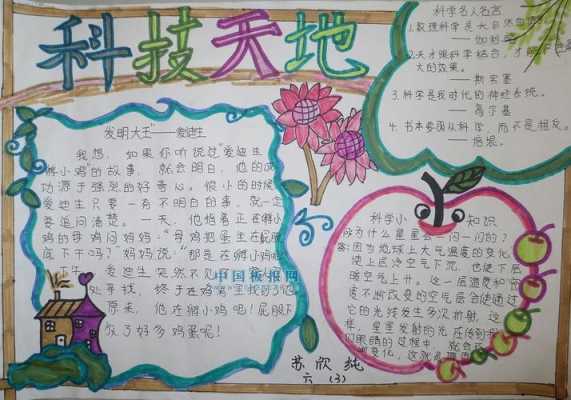 科技天地
发明大王"——爱迪生
我想，如果你听说过"爱迪生
孵小鸡"的故事，就会明白，他的成
功源于强烈的好奇心。很小的时候
爱迪生只要一有不明白的事，就一定
要追问清楚。一天，他指着正在孵小
鸡的母鸡问妈妈："母鸡把蛋坐在屁股
底下干吗？"妈妈说："那是在孵小鸡呢
爱迪生突然不见了
处寻找，终于在鸡窝里找到了他
原来，他在孵小鸡呢！屁股下
放了好多鸡蛋呢！
中国板报网
科学名人名言
1.数理科学是大自然的
——伽利略
2.天才跟科学结合，才能
大的效果。
——斯宾塞
3.科学是我时代的神经系统。
——高尔基
4.书本要面从科学，而不是相反。
——培根
科学小知识
为什么星星会一闪一闪的？
答：因为地球上大气温度的变化
使上层冷空气下沉，也使下层
暖空气上升。这一层温度和密
度不断改变的空气层会使通过
它的光线发生多次折射，这
样，星星发射的光在传到我
们眼睛的过程中，就会
变化，这就是
苏欣纯
六（3）